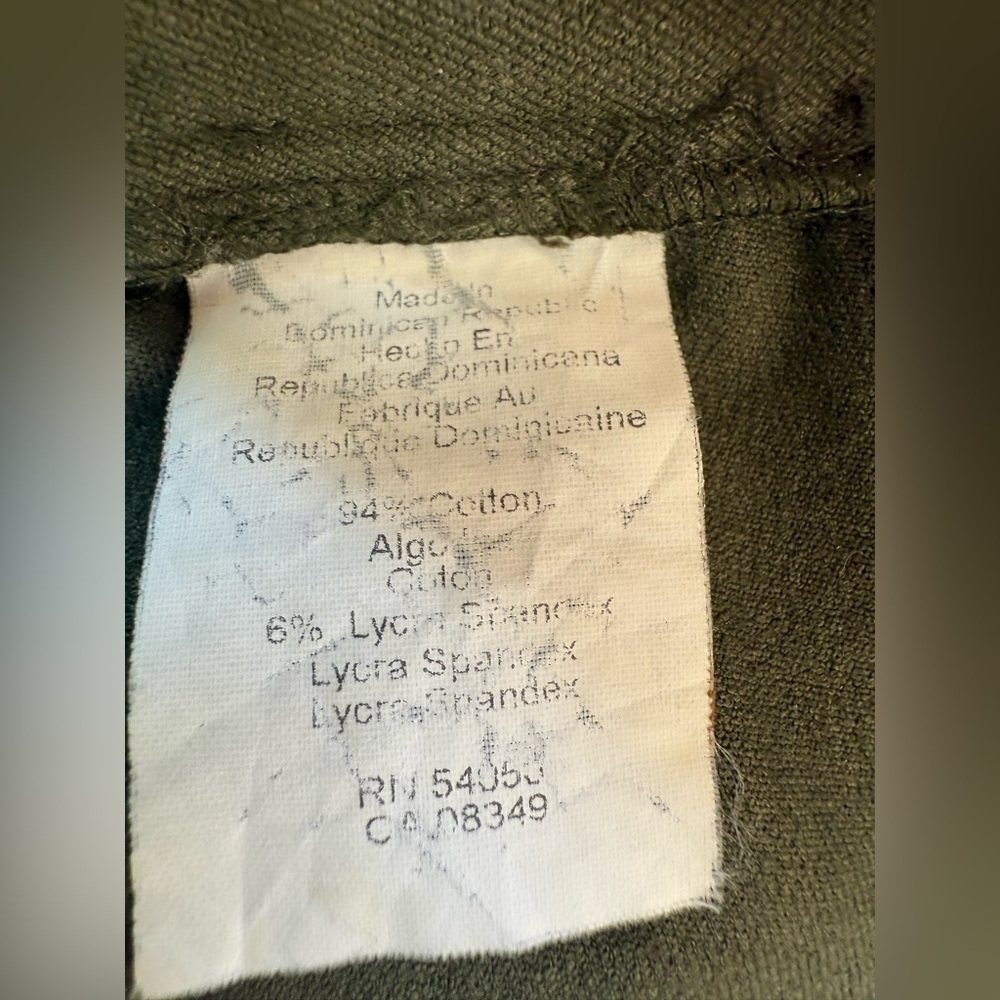 Made In
Dominican Republic
Hecho En
Republica Dominicana
Fabrique Au
Republique Dominicaine
94% Cotton
Algo
Coton
6% Lycra Spandex
Lycra Spandex
Lycra Spandex
RN
CA 08349